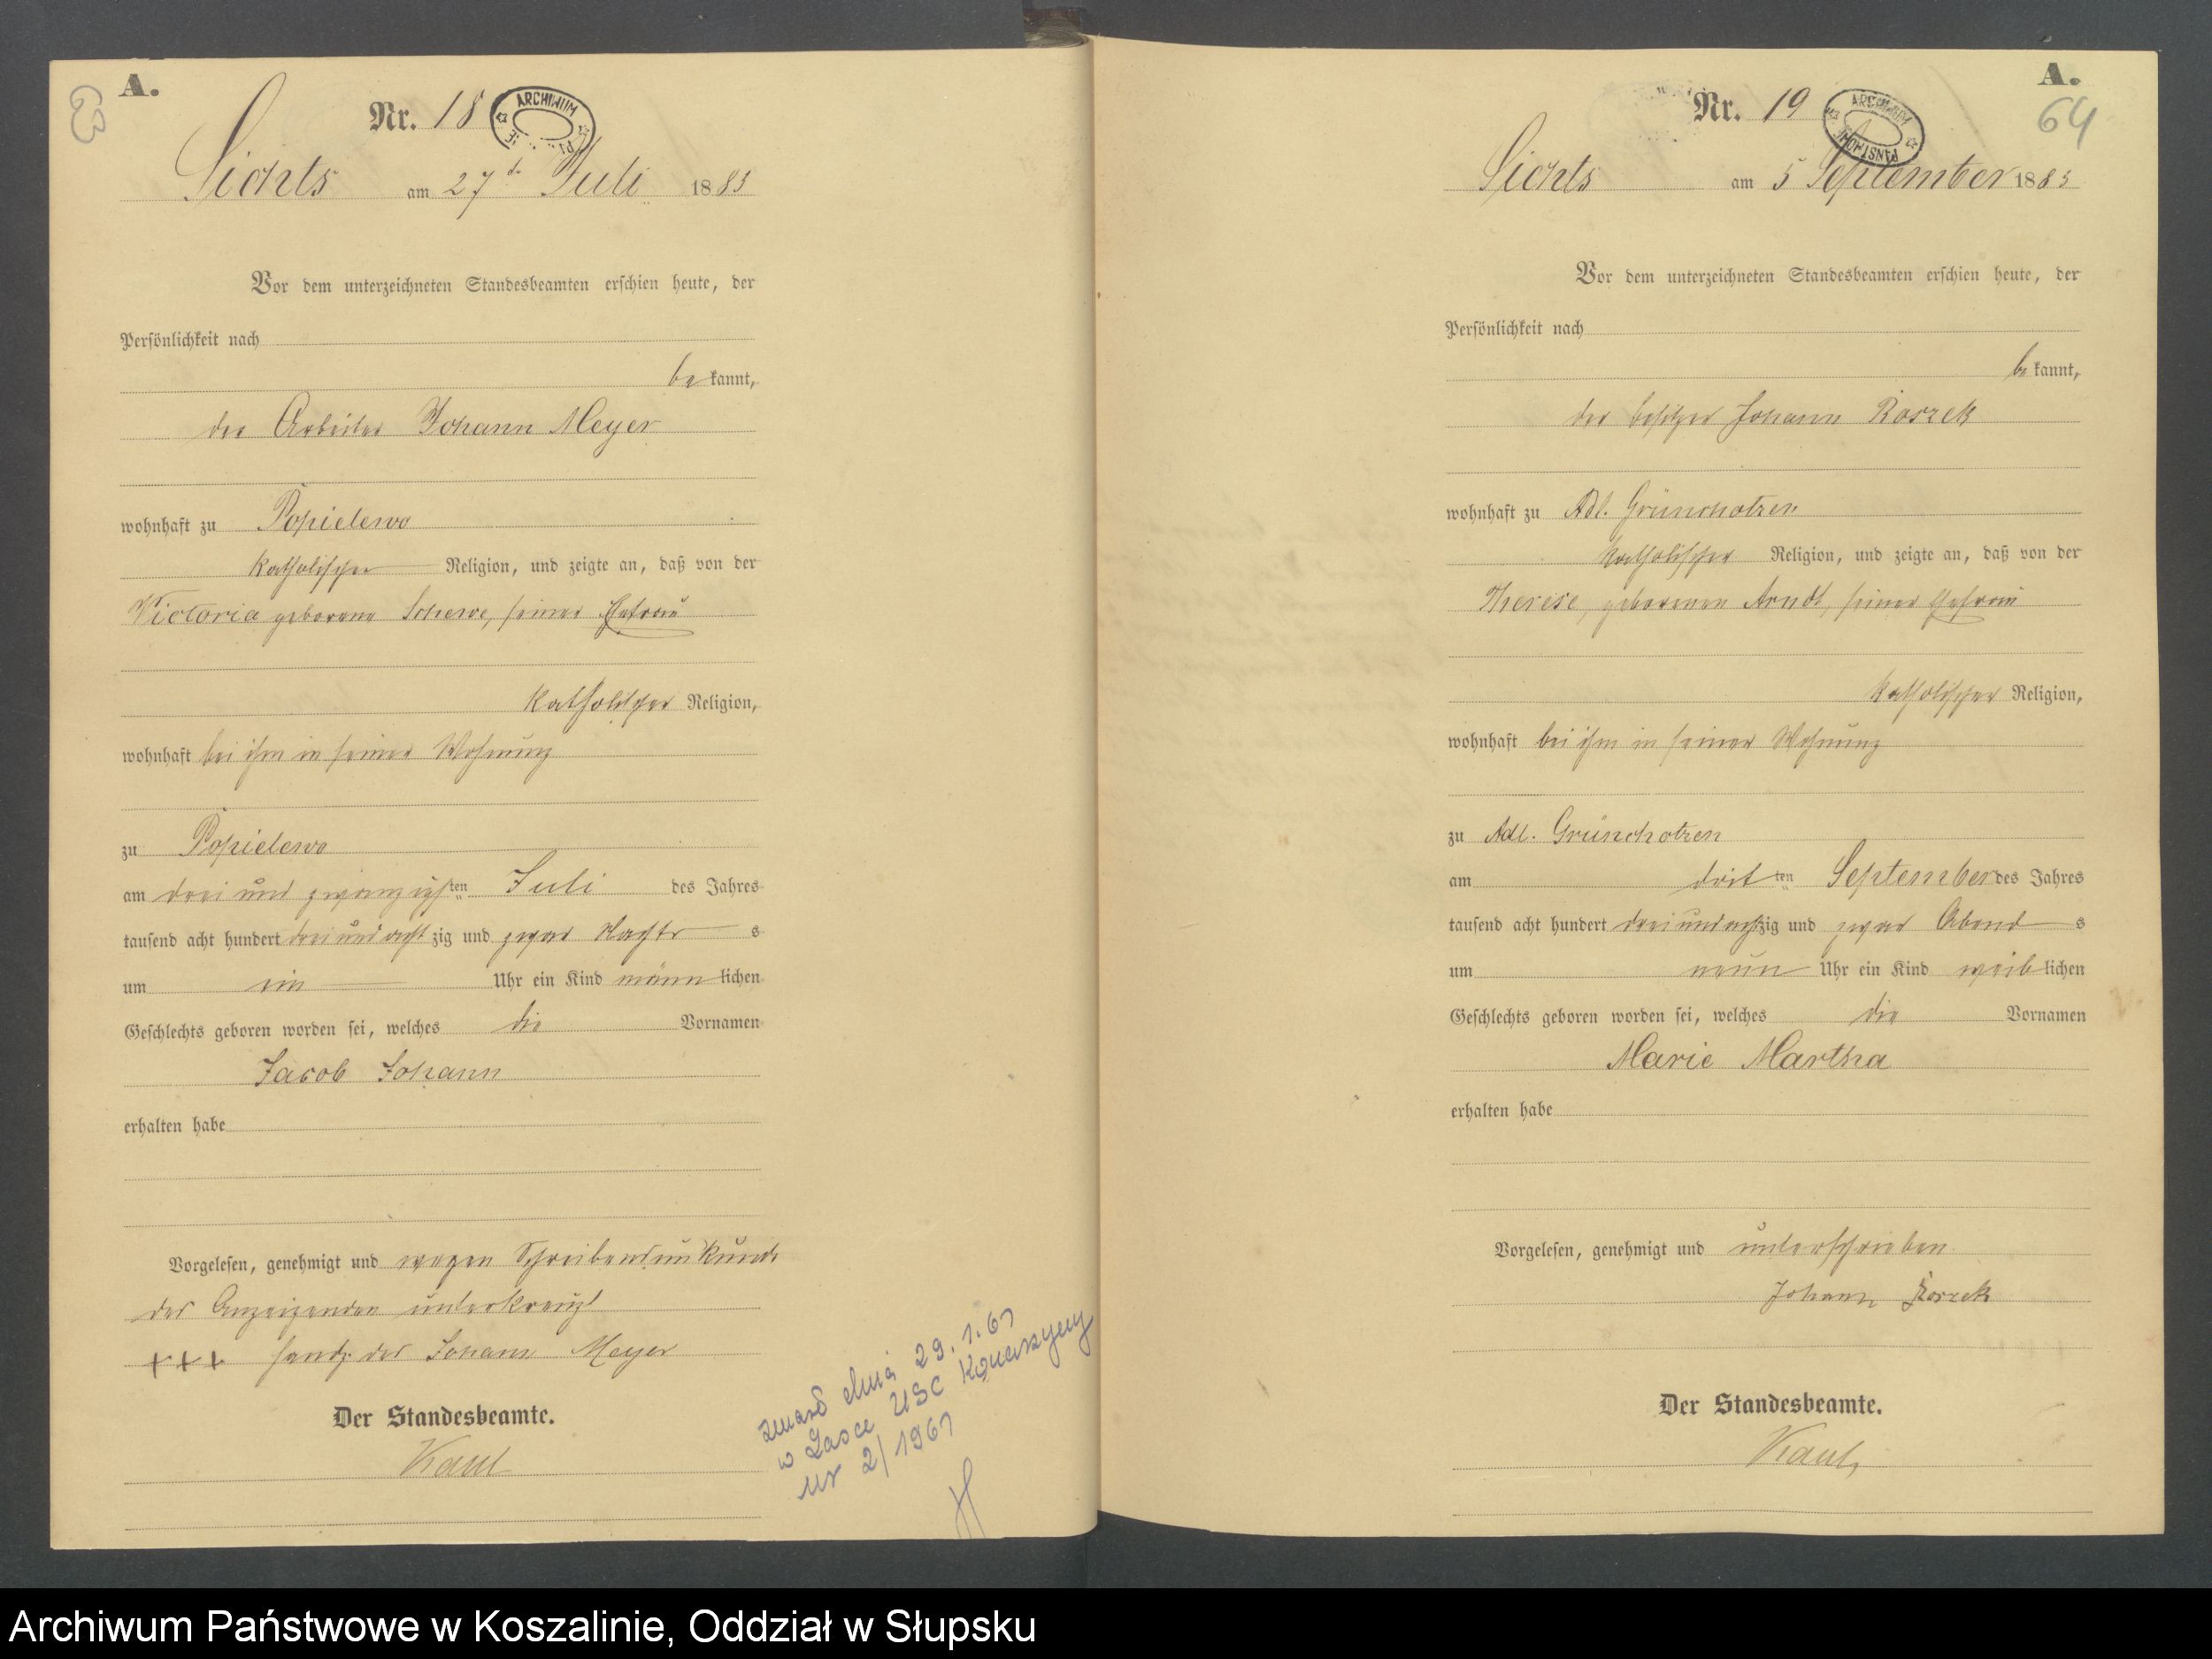 63
A.
Nr. 18
ARCHIWUM
Sichts am 27 t Juli 1883
Vor dem unterzeichneten Standesbeamten erschien heute, der
Persönlichkeit nach
be kannt,
der Arbeiter Johann Meyer
wohnhaft zu Popielewo
katholischer Religion, und zeigte an, daß von der
Victoria geborene Schewe, seiner Ehefrau
katholischer Religion,
wohnhaft bei ihm in seiner Wohnung
zu Popielewo
am drei und zwanzigsten Juli des Jahres
tausend acht hundert drei und acht zig und zwar Nachts
um ein Uhr ein Kind männ lichen
Geschlechts geboren worden sei, welches die Vornamen
Jacob Johann
erhalten habe
Vorgelesen, genehmigt und wegen Schreibensunkunde
des Anzeigenden unterkreuzt
+++ Handz. des Johann Meyer
Der Standesbeamte.
Kaul
zmarł dnia 29.1.61
w Zasce USC Konarzyny
nr 2/1961
A.
64
Nr. 19
ARCHIWUM PAŃSTWOWE
Sichts am 5 September 1883
Vor dem unterzeichneten Standesbeamten erschien heute, der
Persönlichkeit nach
be kannt,
der Besitzer Johann Roszek
wohnhaft zu Adl. Grünchotzen
katholischer Religion, und zeigte an, daß von der
Therese, geborenen Arndt, seiner Ehefrau
katholischer Religion,
wohnhaft bei ihm in seiner Wohnung
zu Adl. Grünchotzen
am dritten September des Jahres
tausend acht hundert drei und achtzig und zwar Abends
um neun Uhr ein Kind weib lichen
Geschlechts geboren worden sei, welches die Vornamen
Marie Martha
erhalten habe
Vorgelesen, genehmigt und unterschrieben
Johann Roszek
Der Standesbeamte.
Kaul
Archiwum Państwowe w Koszalinie, Oddział w Słupsku